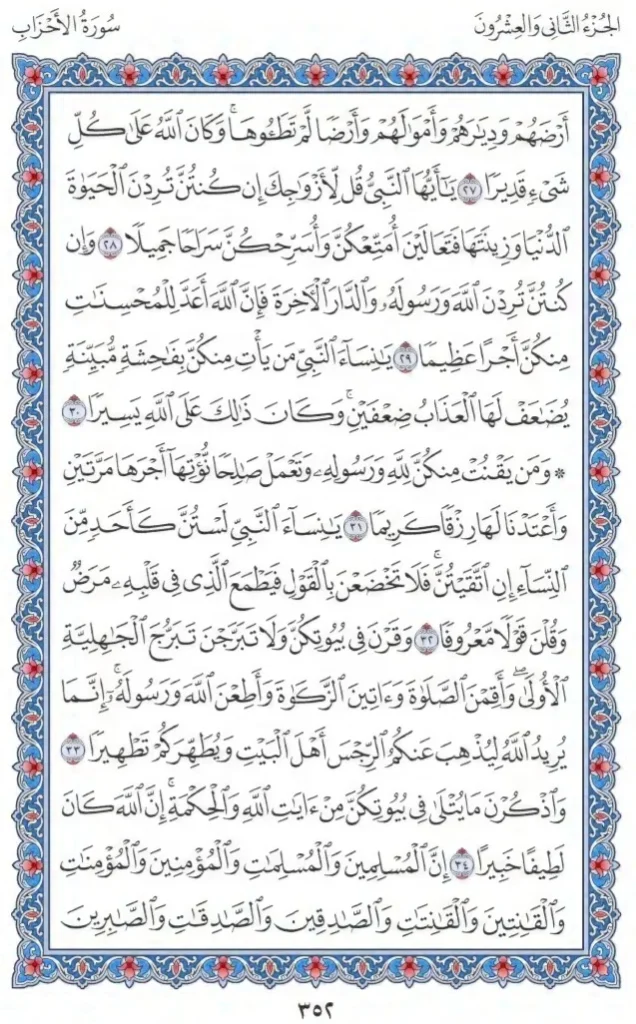 الجُزْءُ الثَّانِي وَالعِشْرُونَ
سُورَةُ الأَحْزَابِ
أَرْضَهُمْ وَدِيَٰرَهُمْ وَأَمْوَٰلَهُمْ وَأَرْضًا لَّمْ تَطَـُٔوهَا ۚ وَكَانَ ٱللَّهُ عَلَىٰ كُلِّ
شَىْءٍ قَدِيرًا ٢٧ يَٰٓأَيُّهَا ٱلنَّبِىُّ قُل لِّأَزْوَٰجِكَ إِن كُنتُنَّ تُرِدْنَ ٱلْحَيَوٰةَ
ٱلدُّنْيَا وَزِينَتَهَا فَتَعَالَيْنَ أُمَتِّعْكُنَّ وَأُسَرِّحْكُنَّ سَرَاحًا جَمِيلًا ٢٨ وَإِن
كُنتُنَّ تُرِدْنَ ٱللَّهَ وَرَسُولَهُۥ وَٱلدَّارَ ٱلْءَاخِرَةَ فَإِنَّ ٱللَّهَ أَعَدَّ لِلْمُحْسِنَٰتِ
مِنكُنَّ أَجْرًا عَظِيمًا ٢٩ يَٰنِسَآءَ ٱلنَّبِىِّ مَن يَأْتِ مِنكُنَّ بِفَٰحِشَةٍ مُّبَيِّنَةٍ
يُضَٰعَفْ لَهَا ٱلْعَذَابُ ضِعْفَيْنِ ۚ وَكَانَ ذَٰلِكَ عَلَى ٱللَّهِ يَسِيرًا ٣٠
* وَمَن يَقْنُتْ مِنكُنَّ لِلَّهِ وَرَسُولِهِۦ وَتَعْمَلْ صَٰلِحًا نُّؤْتِهَآ أَجْرَهَا مَرَّتَيْنِ
وَأَعْتَدْنَا لَهَا رِزْقًا كَرِيمًا ٣١ يَٰنِسَآءَ ٱلنَّبِىِّ لَسْتُنَّ كَأَحَدٍ مِّنَ
ٱلنِّسَآءِ ۚ إِنِ ٱتَّقَيْتُنَّ فَلَا تَخْضَعْنَ بِٱلْقَوْلِ فَيَطْمَعَ ٱلَّذِى فِى قَلْبِهِۦ مَرَضٌ
وَقُلْنَ قَوْلًا مَّعْرُوفًا ٣٢ وَقَرْنَ فِى بُيُوتِكُنَّ وَلَا تَبَرَّجْنَ تَبَرُّجَ ٱلْجَٰهِلِيَّةِ
ٱلْأُولَىٰ ۖ وَأَقِمْنَ ٱلصَّلَوٰةَ وَءَاتِينَ ٱلزَّكَوٰةَ وَأَطِعْنَ ٱللَّهَ وَرَسُولَهُۥٓ ۚ إِنَّمَا
يُرِيدُ ٱللَّهُ لِيُذْهِبَ عَنكُمُ ٱلرِّجْسَ أَهْلَ ٱلْبَيْتِ وَيُطَهِّرَكُمْ تَطْهِيرًا ٣٣
وَٱذْكُرْنَ مَا يُتْلَىٰ فِى بُيُوتِكُنَّ مِنْ ءَايَٰتِ ٱللَّهِ وَٱلْحِكْمَةِ ۚ إِنَّ ٱللَّهَ كَانَ
لَطِيفًا خَبِيرًا ٣٤ إِنَّ ٱلْمُسْلِمِينَ وَٱلْمُسْلِمَٰتِ وَٱلْمُؤْمِنِينَ وَٱلْمُؤْمِنَٰتِ
وَٱلْقَٰنِتِينَ وَٱلْقَٰنِتَٰتِ وَٱلصَّٰدِقِينَ وَٱلصَّٰدِقَٰتِ وَٱلصَّٰبِرِينَ
٣٥٢